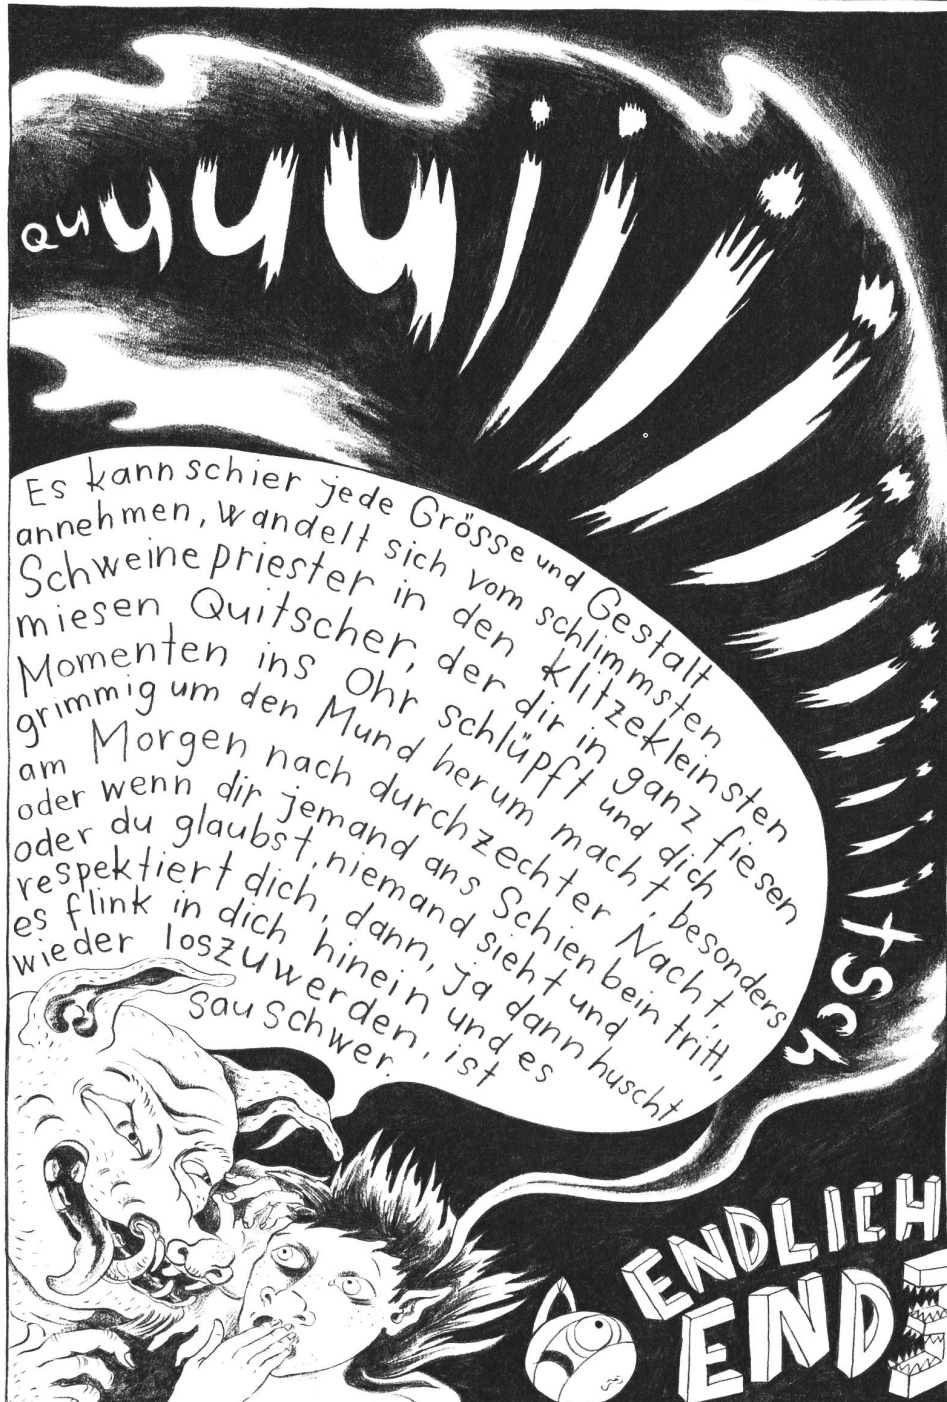 Quuuuiiiiiiiiiiitsch
Es kann schier jede Grösse und Gestalt
annehmen, wandelt sich vom schlimmsten
Schweinepriester in den klitzekleinsten
miesen Quitscher, der dir in ganz fiesen
Momenten ins Ohr schlüpft und dich
grimmig um den Mund herum macht, besonders
am Morgen nach durchzechter Nacht,
oder wenn dir jemand ans Schienbein tritt,
oder du glaubst, niemand sieht und
respektiert dich, dann, ja dann huscht
es flink in dich hinein und es
wieder loszuwerden, ist
sauschwer.
ENDLICH
ENDE